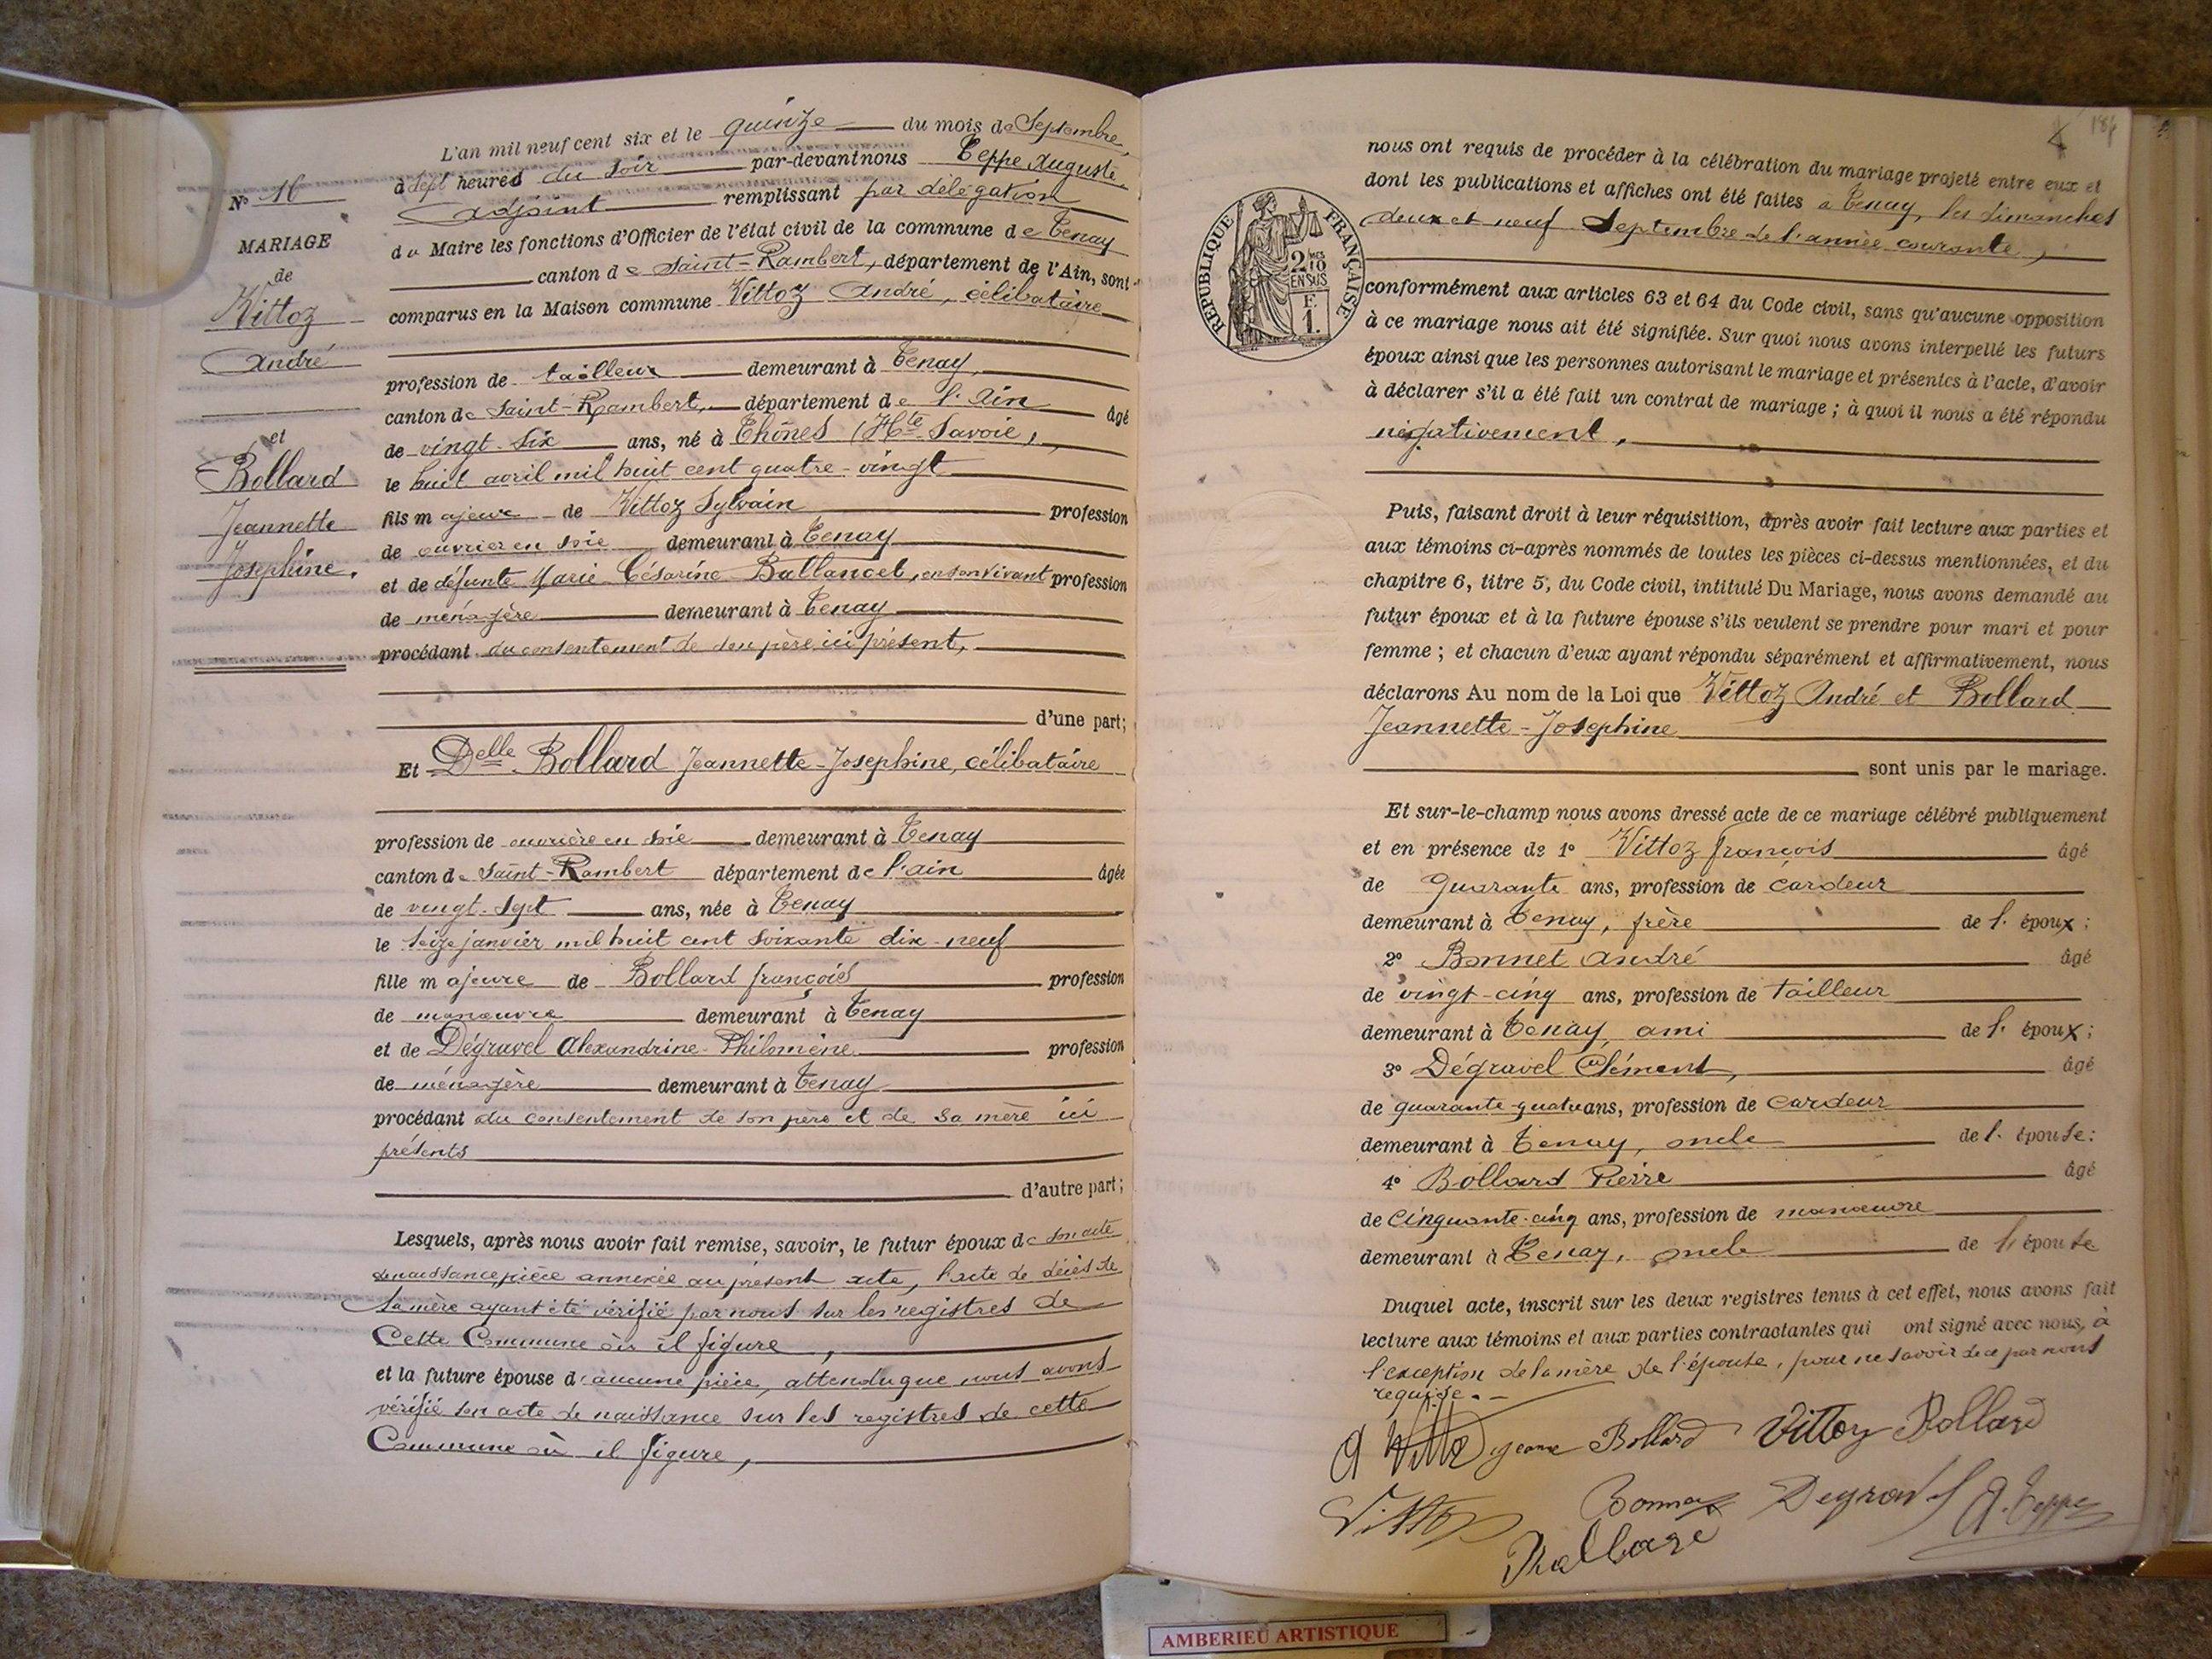 L'an mil neuf cent six et le quinze du mois de Septembre,
à sept heures du soir par-devant nous Teppe Auguste
Adjoint remplissant par délégation
du Maire les fonctions d'Officier de l'état civil de la commune de Tenay
canton de Saint-Rambert, département de l'Ain, sont
comparus en la Maison commune Vittoz André, célibataire
profession de tailleur demeurant à Tenay,
canton de Saint-Rambert, département de l'Ain âgé
de vingt-six ans, né à Thônes (Hte Savoie),
le huit avril mil huit cent quatre-vingt
fils majeur de Vittoz Sylvain profession
de ouvrier en soie demeurant à Tenay
et de défunte Marie Césarine Ballancet, en son vivant profession
de ménagère demeurant à Tenay
procédant du consentement de son père ici présent,
d'une part;
Et Delle Bollard Jeannette-Josephine, célibataire
profession de ouvrière en soie demeurant à Tenay
canton de Saint-Rambert département de l'ain âgée
de vingt-sept ans, née à Tenay
le seize janvier mil huit cent soixante dix-neuf
fille majeure de Bollard françois profession
de manœuvre demeurant à Tenay
et de Dégravel Alexandrine-Philomène profession
de ménagère demeurant à Tenay
procédant du consentement de son père et de sa mère ici
présents
d'autre part;
Lesquels, après nous avoir fait remise, savoir, le futur époux de son acte
de naissance, pièce annexée au présent acte, l'acte de décès de
sa mère ayant été vérifié par nous sur les registres de
Cette Commune où il figure,
et la future épouse d'aucune pièce, attendu que nous avons
vérifié son acte de naissance sur les registres de cette
Commune où il figure,
N° 16
MARIAGE
de
Vittoz
André
et
Bollard
Jeannette
Josephine.
184
nous ont requis de procéder à la célébration du mariage projeté entre eux et
dont les publications et affiches ont été faites a Tenay, les dimanches
deux et neuf Septembre de l'année courante,
conformément aux articles 63 et 64 du Code civil, sans qu'aucune opposition
à ce mariage nous ait été signifiée. Sur quoi nous avons interpellé les futurs
époux ainsi que les personnes autorisant le mariage et présentes à l'acte, d'avoir
à déclarer s'il a été fait un contrat de mariage ; à quoi il nous a été répondu
négativement,
RÉPUBLIQUE FRANÇAISE
2 MES
10
EN SUS
E
1.
Puis, faisant droit à leur réquisition, après avoir fait lecture aux parties et
aux témoins ci-après nommés de toutes les pièces ci-dessus mentionnées, et du
chapitre 6, titre 5, du Code civil, intitulé Du Mariage, nous avons demandé au
futur époux et à la future épouse s'ils veulent se prendre pour mari et pour
femme ; et chacun d'eux ayant répondu séparément et affirmativement, nous
déclarons Au nom de la Loi que Vittoz André et Bollard
Jeannette-Josephine
sont unis par le mariage.
Et sur-le-champ nous avons dressé acte de ce mariage célébré publiquement
et en présence de 1° Vittoz françois âgé
de quarante ans, profession de cardeur
demeurant à Tenay, frère de l'époux;
2° Bonnet André âgé
de vingt-cinq ans, profession de tailleur
demeurant à Tenay, ami de l'époux;
3° Dégravel Clément, âgé
de quarante-quatre ans, profession de cardeur
demeurant à Tenay, oncle de l'épouse;
4° Bollard Pierre âgé
de cinquante-cinq ans, profession de manœuvre
demeurant à Tenay, oncle de l'épouse
Duquel acte, inscrit sur les deux registres tenus à cet effet, nous avons fait
lecture aux témoins et aux parties contractantes qui ont signé avec nous, à
l'exception de la mère de l'épouse, pour ne savoir de ce par nous
requise.
Jeanne Bollard Vittoz Bollard
Vittoz Degravel A. Teppe
AMBERIEU ARTISTIQUE